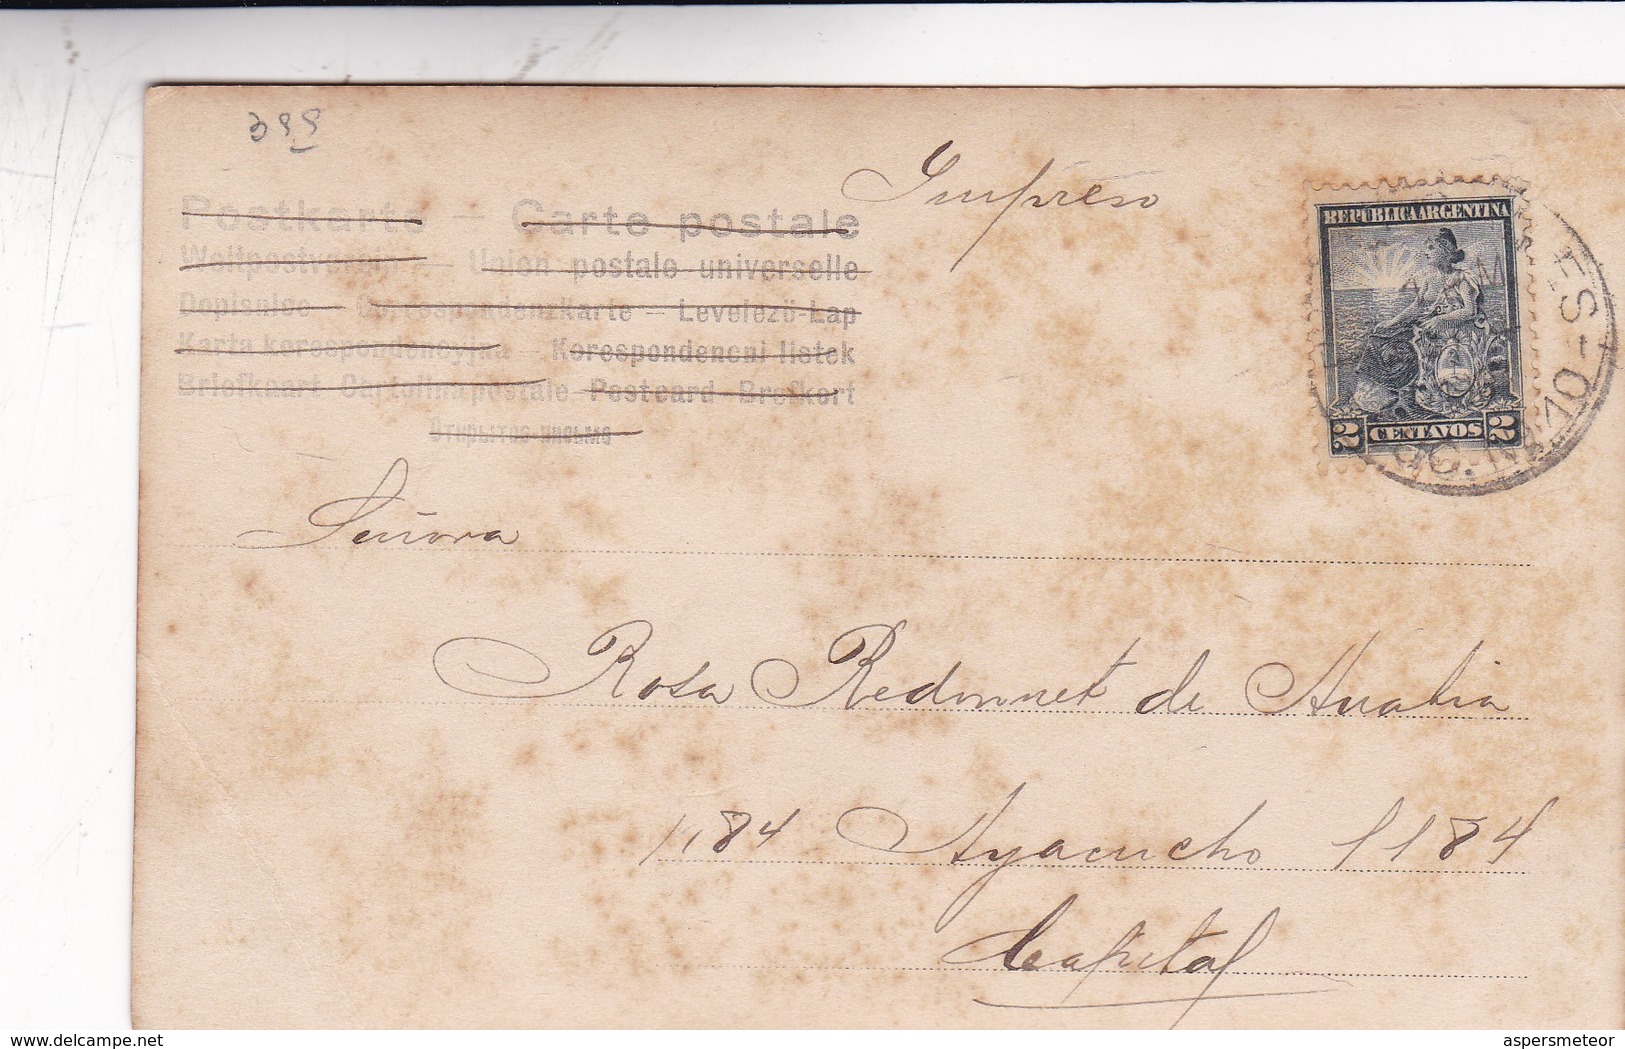 399
Impreso
Postkarte – Carte postale
Weltpostverein – Union postale universelle
Dopisnice – Correspondenzkarte – Levelező-Lap
Karta korespondencyjna – Korespondencni listek
Briefkaart Cartolina postale Postcard Brefkort
Открытое письмо
REPUBLICA ARGENTINA
2 CENTAVOS 2
UC. Nº 10 - ES
Señora
Rosa Redonnet de
1184 Ayacucho 1184
Capital
delcampe.net
aspersmeteor